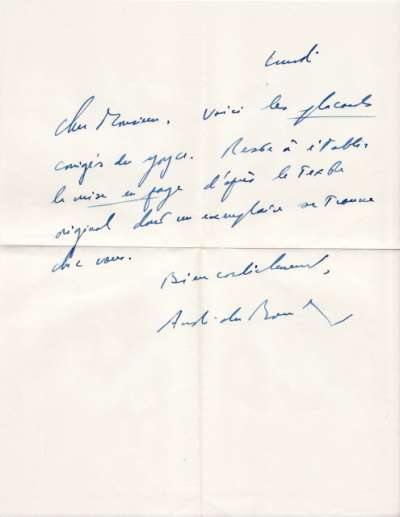 Lundi
Cher Monsieur, voici les placards
corrigés du Joyce. Reste à établir
la mise en page d'après le texte
original dont un exemplaire se trouve
chez vous.
Bien cordialement,
André du Bouchet